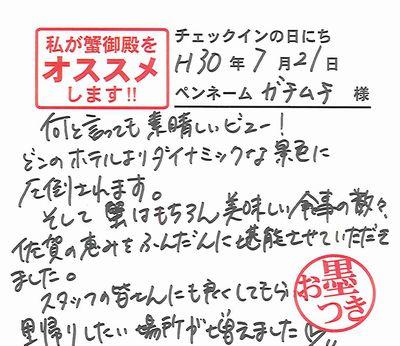 私が蟹御殿を
オススメ
します!!
チェックインの日にち
H30年7月21日
ペンネーム ガチムチ 様
何と言っても素晴しいビュー!
どこのホテルよりダイナミックな景色に
圧倒されます。
そして蟹はもちろん美味しい食事の数々、
佐賀の恵みをふんだんに堪能させていただき
ました。
スタッフの皆さんにも良くしてもらい
里帰りしたい場所が増えました
お墨つき